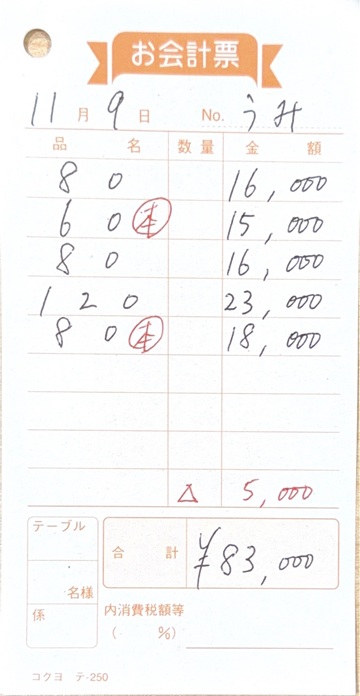 お会計票
11月9日 No. うみ
品名 数量 金額
80 16,000
60 本 15,000
80 16,000
120 23,000
80 本 18,000
△ 5,000
テーブル
名様
係
合計 ¥83,000
内消費税額等
( %)
コクヨ テ-250